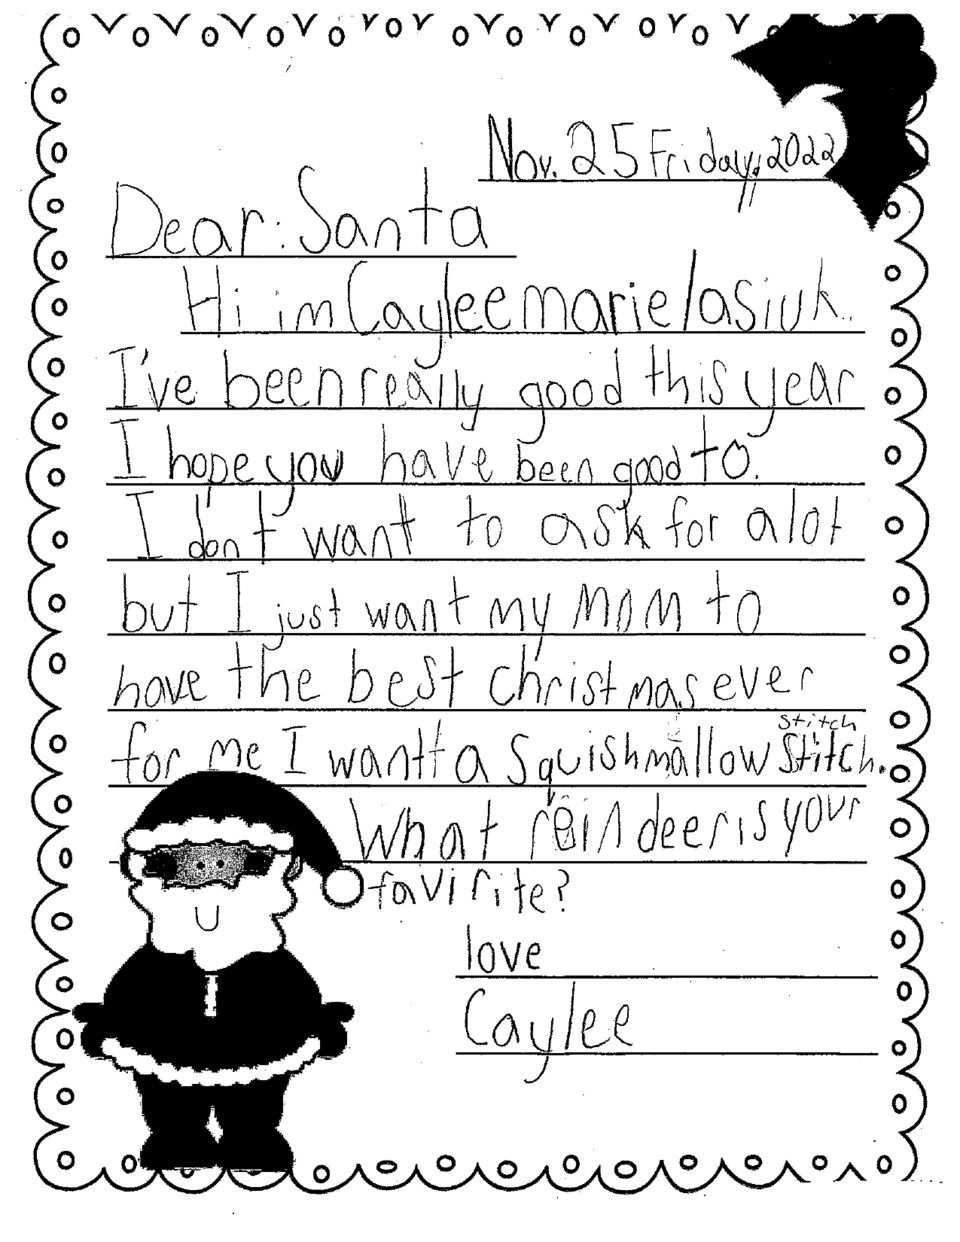 Nov. 25 Friday, 2022
Dear: Santa
Hi im Caylee marie lasiuk.
I've been really good this year
I hope you have been good to.
I don't want to ask for a lot
but I just want my mom to
have the best christmas ever
stitch
for me I want a squishmallow Stitch.
What reindeer is your
favirite?
love
Caylee